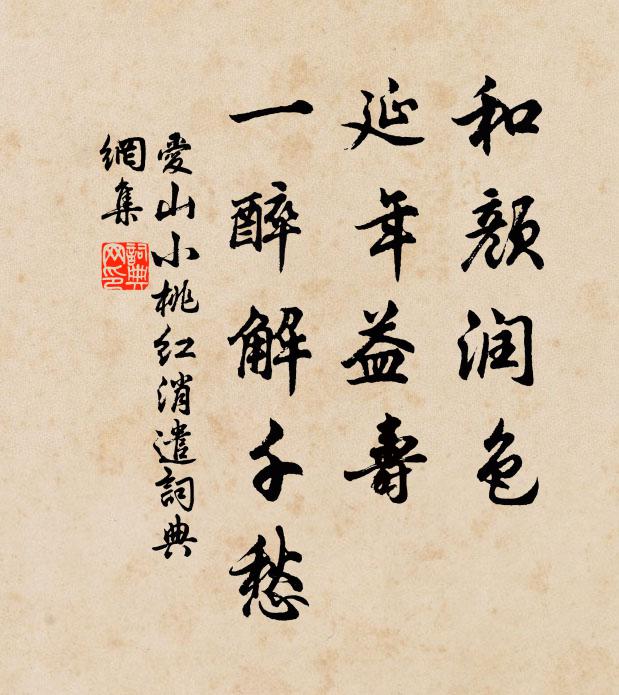 和颜润色
延年益壽
一醉解千愁
愛山小桃红消遣詞典
網集
詞典
网印